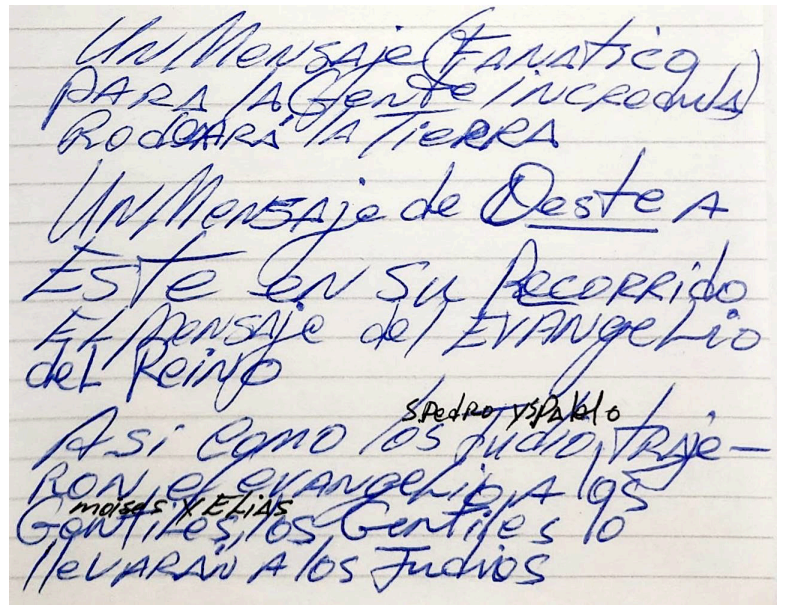 Un Mensaje (Fanatico
PARA la Gente incredula)
RodeARÁ la TieRRA
Un Mensaje de Oeste A
Este en su RecoRRido
El Mensaje del EVANgeLio
deL Reino
S.Pedro y S Pablo
Asi como los Judio, traje-
RON el evangelio A los
moises y ELias
Gentiles, los Gentiles lo
llevARÁN A los Judios